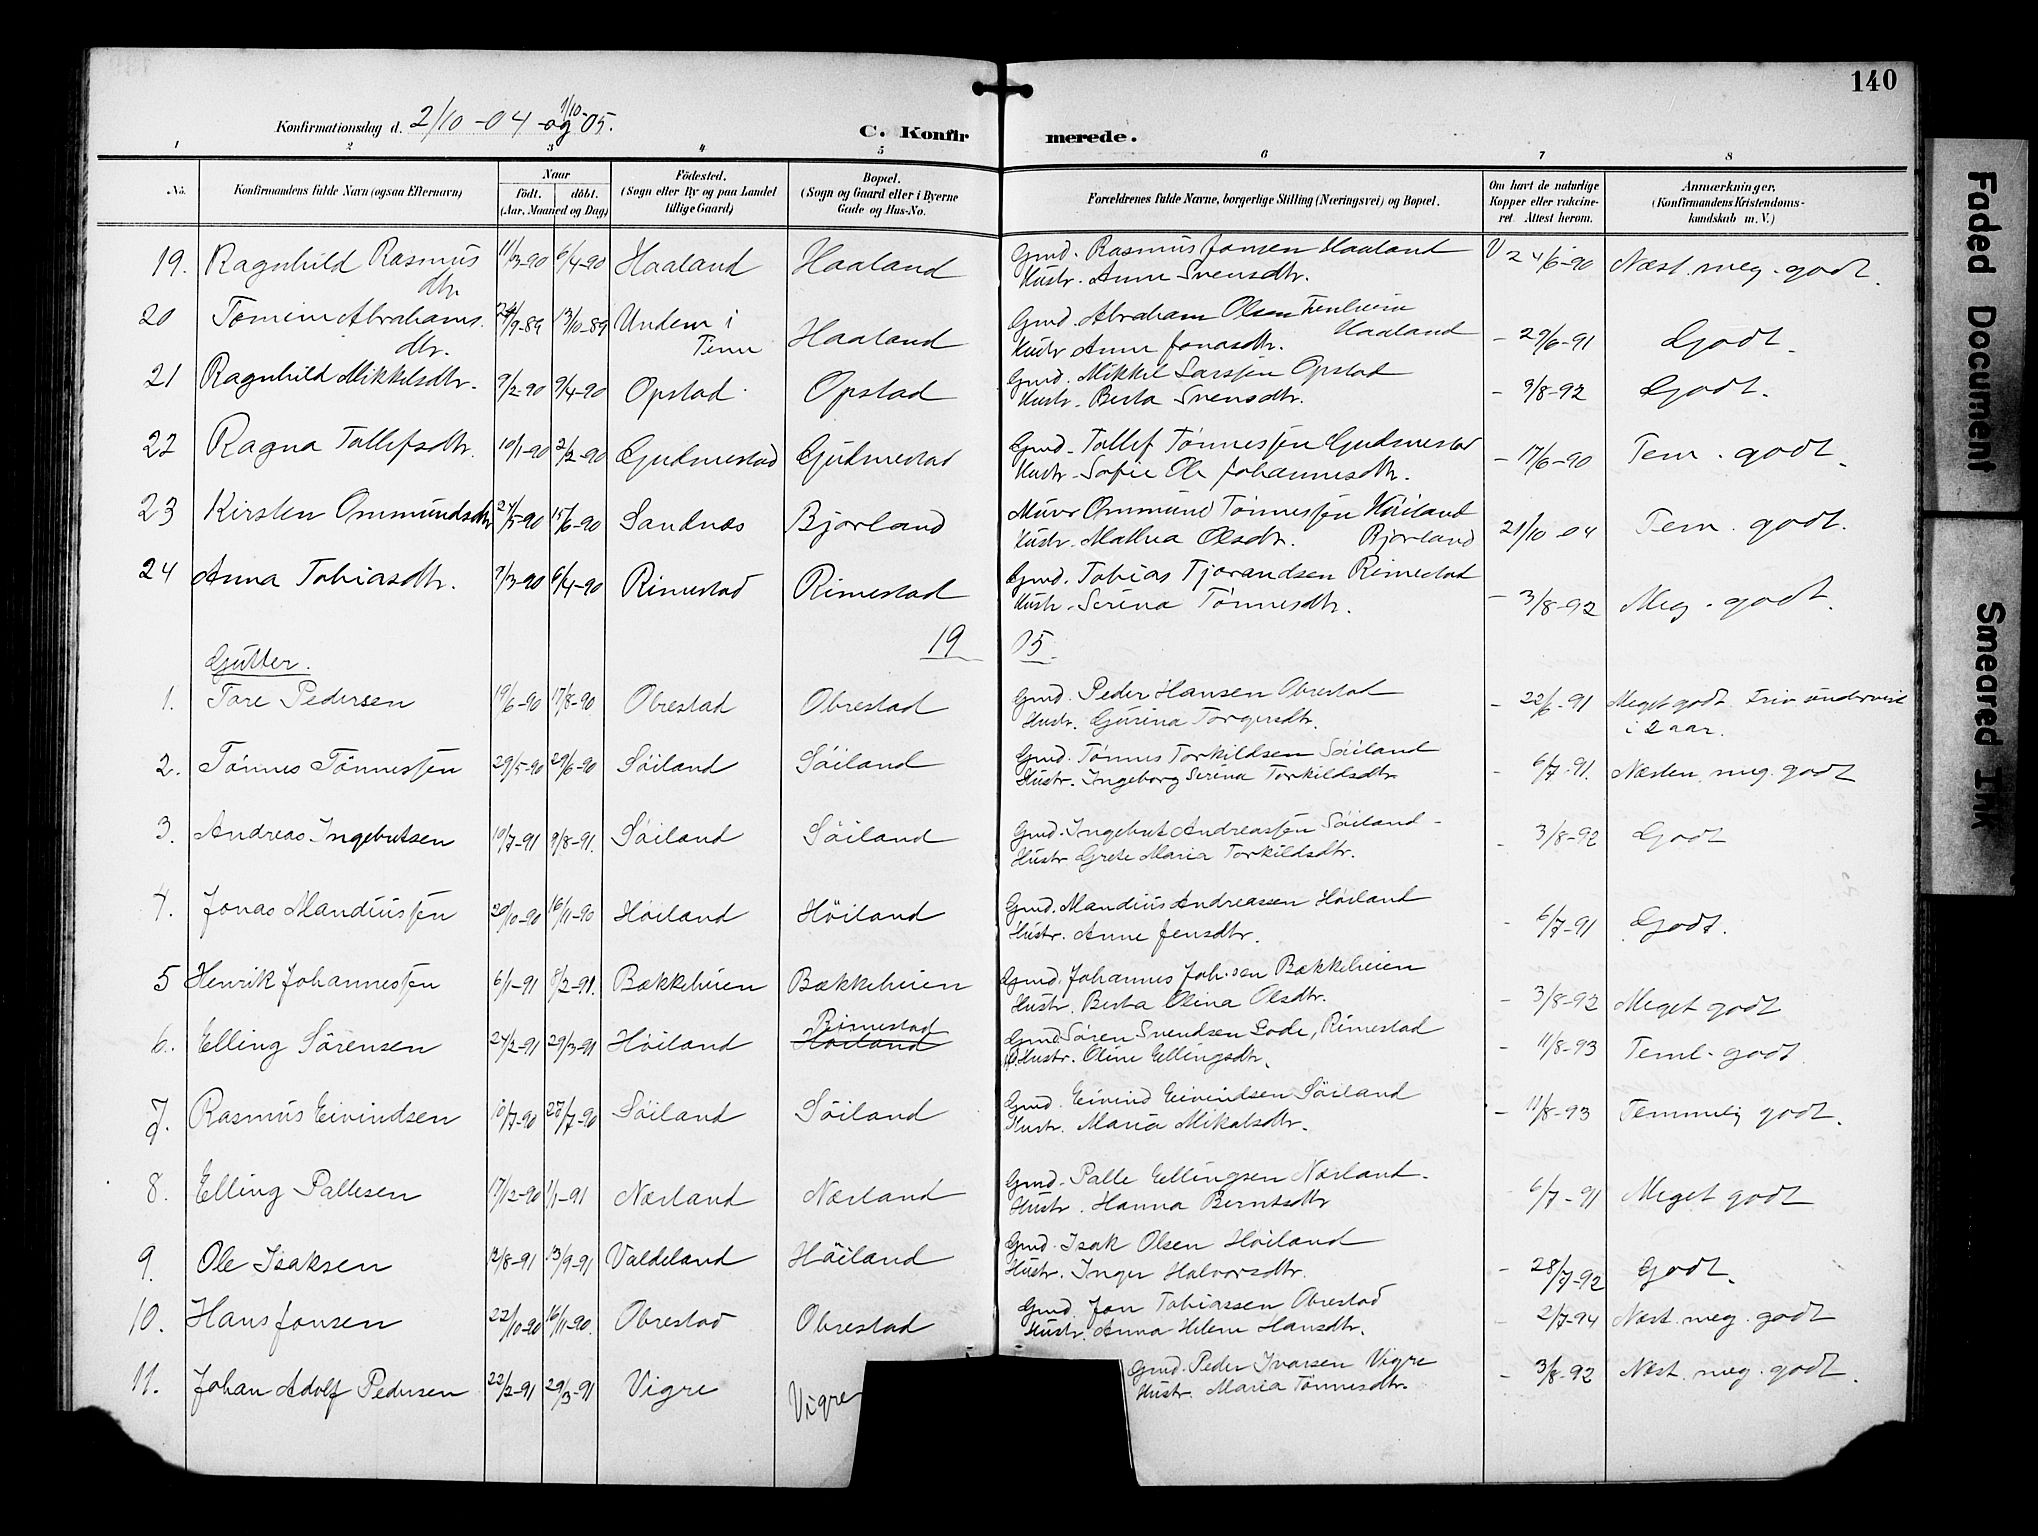 140
Konfirmationsdag d. 2/10-04 og 1/10-05.
C. Konfirmerede.
1 2 3 4 5 6 7 8
No. Konfirmandens fulde Navn (ogsaa Efternavn) Naar født. døbt. (Aar, Maaned og Dag) Fødested. (Sogn eller By og paa Landet tillige Gaard) Bopæl. (Sogn og Gaard eller i Byerne Gade og Hus-No. Forældrenes fulde Navne, borgerlige Stilling (Næringsvei) og Bopæl. Om havt de naturlige Kopper eller vaccineret. Attest herom. Anmærkninger. (Konfirmandens Kristendomskundskab m. V.)
19. Ragnhild Rasmusdtr. 11/3-90 6/4-90 Haaland Haaland Gmd. Rasmus Jonsen Haaland V 24/6-90 Næst. meg. godt.
Hustr. Anne Svensdtr.
20 Tomine Abrahamsdtr. 24/9-89 13/10-89 Undem i Time Haaland Gmd. Abraham Olsen Haaland - 29/6-91 Godt.
Hustr Anne Jonasdtr.
21 Ragnhild Mikkelsdtr. 9/2-90 9/4-90 Opstad Opstad Gmd. Mikkel Larssen Opstad - 9/8-92 Godt.
Hustr. Berta Svensdtr.
22 Ragna Tollefsdtr. 10/1-90 2/2-90 Gudmestad Gudmestad Gmd. Tollef Tönnessen Gudmestad - 17/6-90 Tem. godt.
Hustr. Sofie Ol Johannesdtr.
23 Kirsten Ommundsdtr 27/5-90 15/6-90 Sandnæs Bjorland Murer Ommund Tönnessen Höiland 21/10-04 Tem. godt.
Hustr. Mathea Olsdtr. Bjorland
24 Anna Tobiasdtr. 7/3-90 6/4-90 Rimestad Rimestad Gmd. Tobias Tjorandsen Rimestad - 3/8-92 Meg. godt.
Hustr. Serina Tönnesdtr.
1905
Gutter.
1. Tore Pedersen 19/6-90 17/8-90 Obrestad Obrestad Gmd. Peder Hansen Obrestad - 22/6-91 Meget godt. Friv. undervist i 2 aar.
Hustr. Gurina Torgersdtr.
2. Tönnes Tönnessen 29/5-90 29/6-90 Söiland Söiland Gmd. Tönnes Torkildsen Söiland - 6/7-91. Næsten meg. godt
Hustr. Ingeborg Serina Torkildsdtr
3. Andreas Ingebretsen 10/7-91 9/8-91. Söiland Söiland Gmd. Ingebret Andreassen Söiland - - 3/8-92 Godt
Hustr Grete Maria Torkildsdtr.
4. Jonas Mandiussen 20/10-90 16/11-90 Höiland Höiland Gmd. Mandius Andreassen Höiland - 6/7-91 Godt.
Hustr. Anne Jensdtr.
5 Henrik Johannessen 6/1-91 8/2-91. Bækkeheien Bækkeheien Gmd. Johannes Joh.sen Bækkeheien - 3/8-92 Meget godt
Hustr. Berta Olina Olsdtr.
6. Elling Sörensen 24/2-91 29/3-91 Höiland Rimestad Höiland Gmd Sören Svendsen Lode, Rimestad - 11/8-93 Teml. godt
Hustr. Oline Ellingsdtr.
7. Rasmus Eivindsen 10/7-90 28/7-90 Söiland Söiland Gmd. Eivind Eivindsen Söiland - 11/8-93 Temmelig godt.
Hustr. Maria Mikalsdtr.
8. Elling Pallesen 17/12-90 1/1-91 Nærland Nærland Gmd. Palle Ellingsen Nærland. 6/7-91 Meget godt
Hustr. Hanna Berntsdtr
9. Ole Isaksen 12/8-91 13/9-91 Valdeland Höiland Gmd. Isak Olsen Höiland - 28/7-92 Godt.
Hustr. Inger Halvorsdtr.
10. Hans Jonsen 22/10-90 16/11-90. Obrestad Obrestad Gmd Jon Tobiassen Obrestad - 2/7-94 Næst. meg. godt
Hustr. Anna Helene Hansdtr.
11. Johan Adolf Pedersen 22/2-91 29/3-91 Vigre Vigre Gmd. Peder Ivarsen Vigre - 3/8-92 Næst. meg. godt.
Hustr. Maria Tönnesdtr.
Faded Document
Smeared Ink